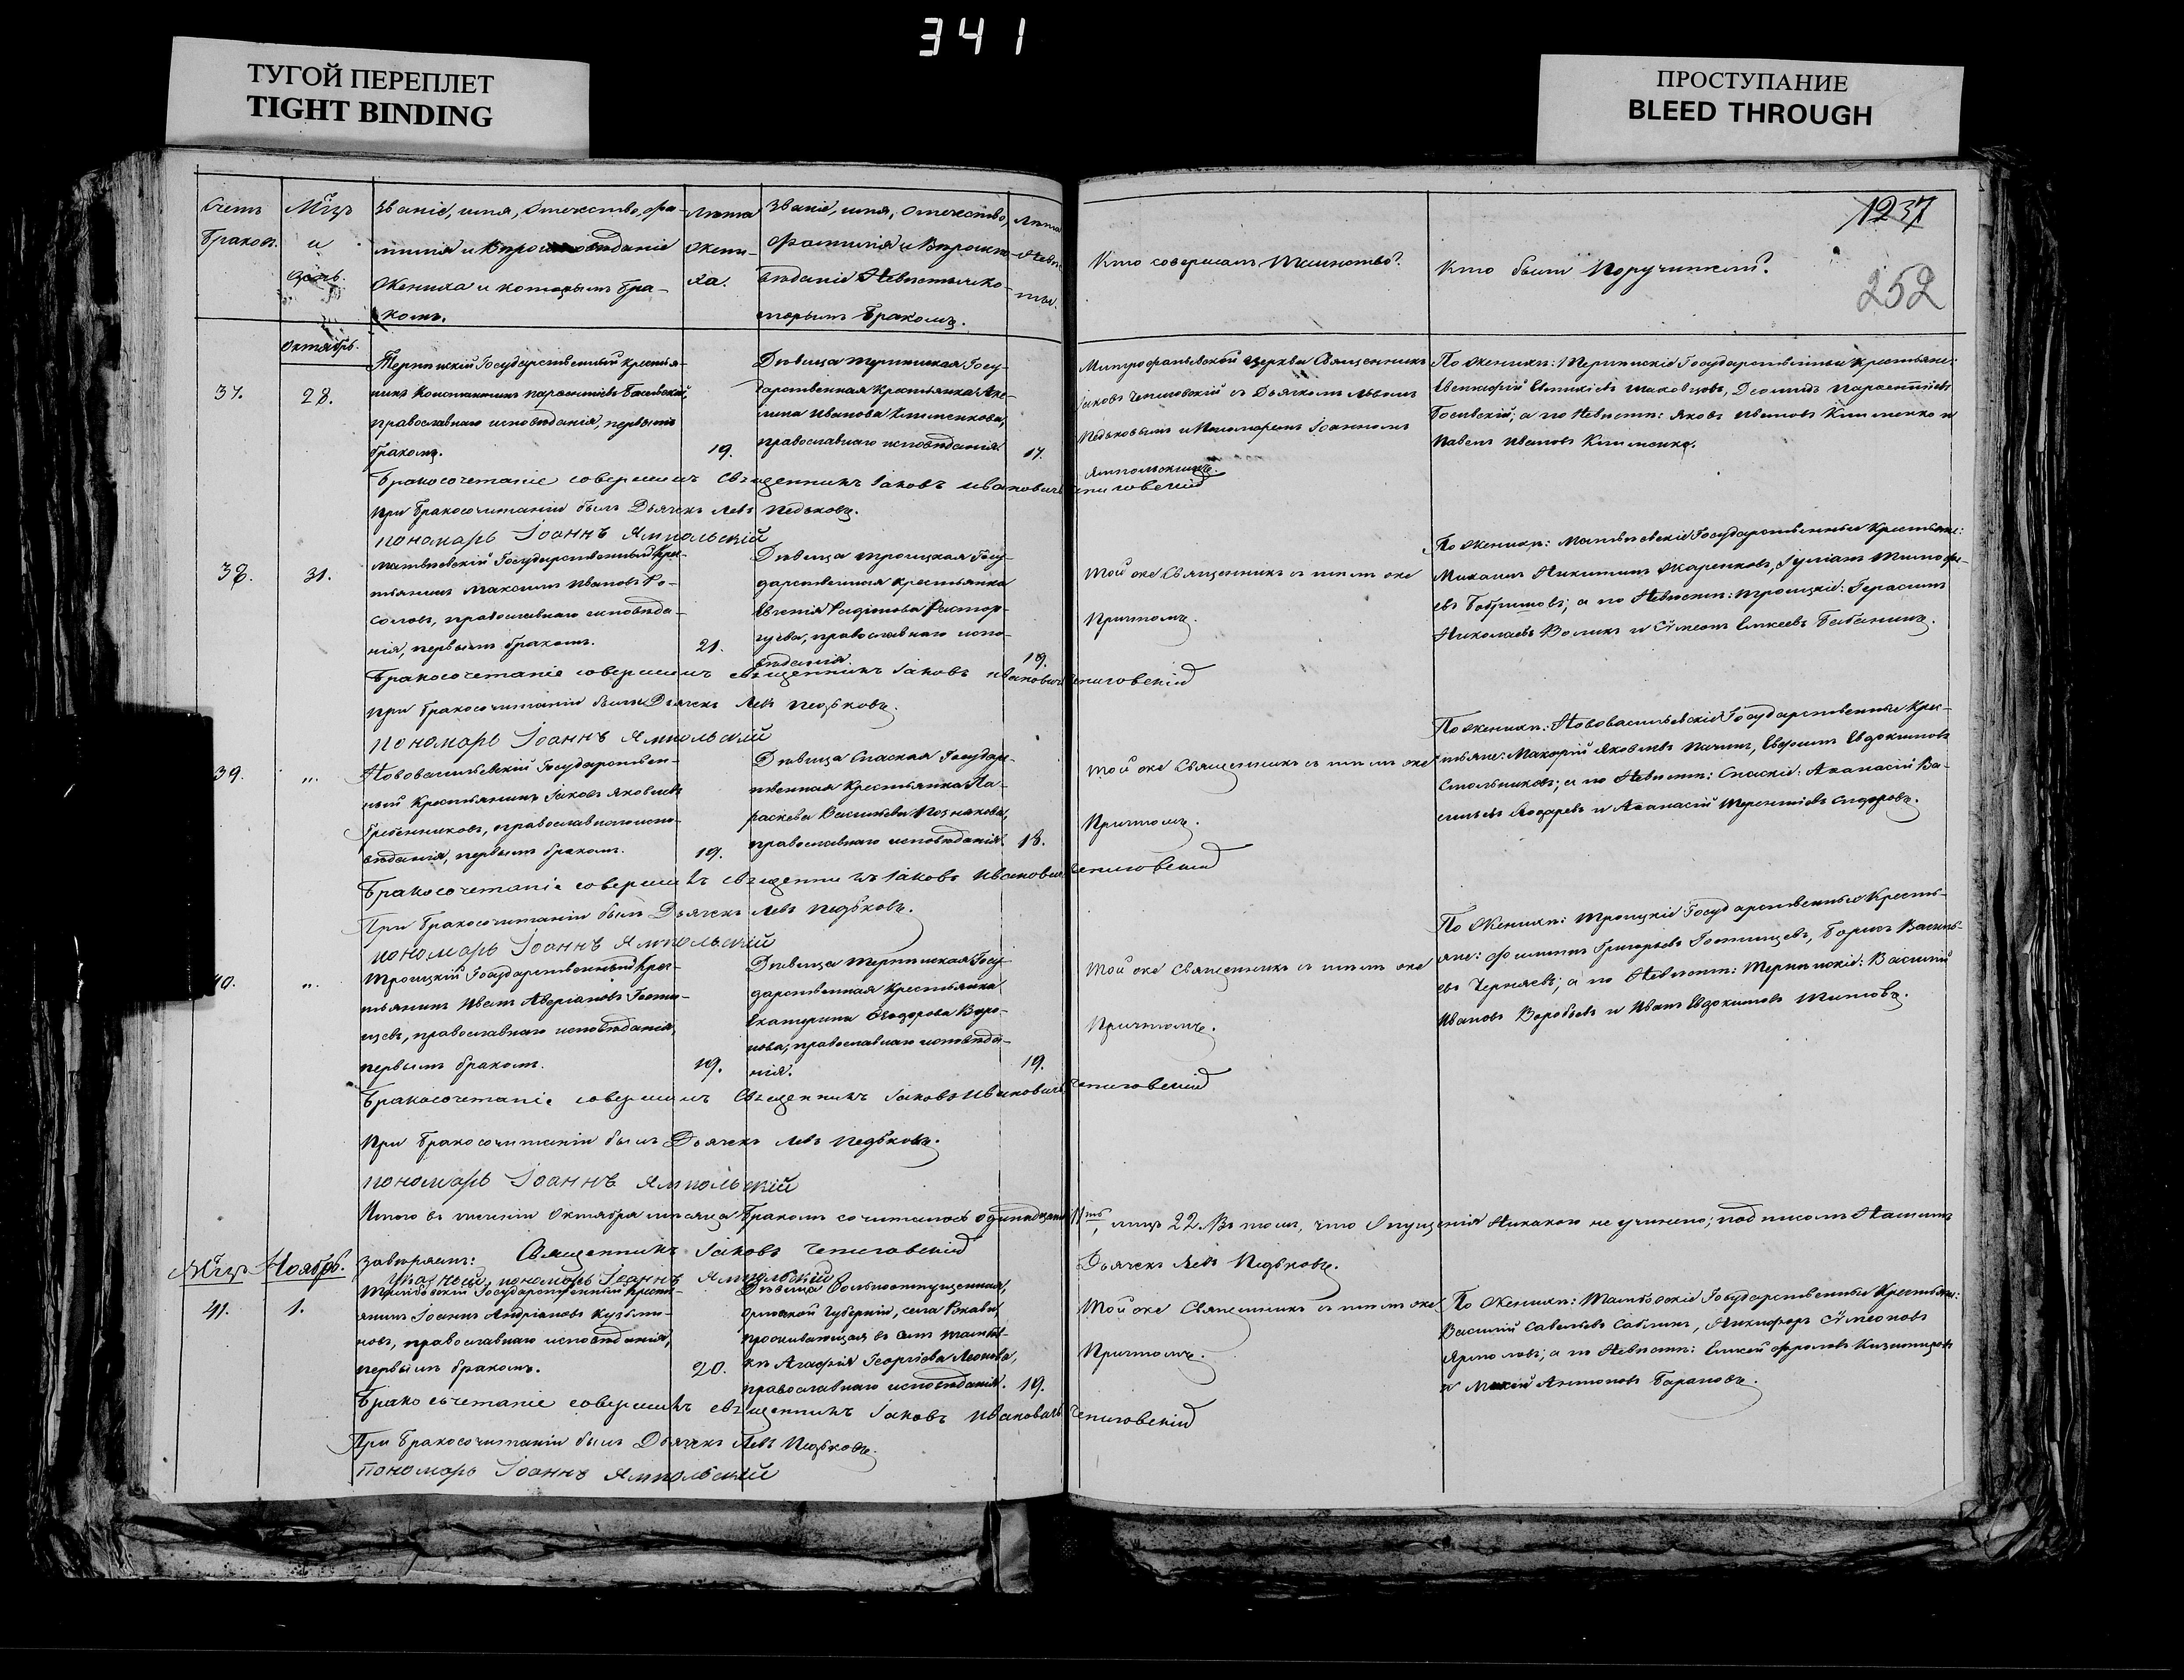 341
ТУГОЙ ПЕРЕПЛЕТ
TIGHT BINDING
ПРОСТУПАНИЕ
BLEED THROUGH
1237
252
Счетъ
браковъ.
Мѣцъ
и
день.
Званіе, имя, отечество, фа-
милія и Вѣроисповѣданіе
Жениха и которымъ бра-
комъ.
Лѣта
Жени-
ха.
Званіе, имя, отечество,
фамилія и Вѣроиспо-
вѣданіе Невѣсты и ко-
торымъ бракомъ.
Лѣта
Невѣ-
сты.
Кто совершалъ Таинство?
Кто были Поручители?
Октябрь.
37.
28.
Терпѣнскій Государственный Крестья-
нинъ Константинъ
православнаго исповѣданія, первымъ
бракомъ.
19.
Дѣвица Терпѣнская Госу-
дарственная Крестьянка
Иванова Клименкова,
православнаго исповѣданія.
17.
Митрофаньевской церкви Священникъ
Іаковъ Чепиговскій съ Дьячкомъ Львомъ
Педьковымъ и Пономаремъ Іоанномъ
Ямпольскимъ.
По Женихѣ: Терпѣнскіе Государственные Крестьяне:
а по Невѣстѣ: Яковъ Ивановъ Клименко и
Павелъ Ивановъ Клименко.
Бракосочетаніе совершилъ Священникъ Іаковъ Ивановичъ Чепиговскій
При бракосочитаніи былъ Дьячекъ Левъ Педьковъ.
пономарь Іоаннъ Ямпольскій
38.
31.
Матвѣевскій Государственный Крес-
тьянинъ Максимъ Ивановъ Ко-
соловъ, православнаго исповѣда-
нія, первымъ бракомъ.
21.
Дѣвица Троицкая Госу-
дарственная Крестьянка
Евгенія Родіонова Растор-
гуева, православнаго испо-
вѣданія.
19.
Той же Священникъ съ тѣмъ же
Причтомъ.
По Женихѣ: Матвѣевскіе Государственные Крестьяне:
Михаилъ Никитинъ Жаренковъ, Гуріанъ Тимофе-
евъ а по Невѣстѣ: Троицкіе: Герасимъ
Николаевъ Воликъ и Сѵмеонъ Бабанинъ.
Бракосочетаніе совершилъ священникъ Іаковъ Ивановичъ Чепиговскій
при бракосочитаніи былъ Дьячекъ Левъ Педьковъ.
пономарь Іоаннъ Ямпольскій
39.
„.
Нововасильевскій Государствен-
ный Крестьянинъ Іаковъ Яковлевъ
Гребенниковъ, православнаго испо-
вѣданія, первымъ бракомъ.
19.
Дѣвица Спаская Государ-
ственная Крестьянка Па-
раскева Васильева Познякова,
православнаго исповѣданія.
18.
Той же Священникъ съ тѣмъ же
Причтомъ.
По Женихѣ: Нововасильевскіе Государственные Крес-
тьяне: Макарій Яковлевъ Ефимъ Евдокимовъ
Стольниковъ; а по Невѣстѣ: Спаскіе: Аѳанасій Ва-
сильевъ и Аѳанасій Терентіевъ Сидоровъ.
Бракосочетаніе совершилъ священникъ Іаковъ Ивановичъ Чепиговскій
При бракосочитаніи былъ Дьячекъ Левъ Педьковъ.
пономарь Іоаннъ Ямпольскій
40.
„.
Троицкій Государственный Крес-
тьянинъ Иванъ Аверіановъ Гости-
щевъ, православнаго исповѣданія,
первымъ бракомъ.
19.
Дѣвица Терпѣнская Госу-
дарственная Крестьянка
Екатерина Ѳеодорова Воро-
нова, православнаго исповѣда-
нія.
19.
Той же Священникъ съ тѣмъ же
Причтомъ.
По Женихѣ: Троицкіе Государственные Кресть-
яне: Филиппъ Григорьевъ Гостищевъ, Борисъ Василь-
евъ Черняевъ; а по Невѣстѣ: Терпѣнскіе: Василій
Ивановъ Воробьевъ и Иванъ Евдокимовъ Титовъ.
Бракосочетаніе совершилъ Священникъ Іаковъ Ивановичъ Чепиговскій
При бракосочитаніи былъ Дьячекъ Левъ Педьковъ.
пономарь Іоаннъ Ямпольскій
Итого въ теченіи Октября мѣсяца Бракомъ сочиталось одинадцать 11ть, лицъ 22. Въ томъ, что Опущенія Никакого не учинено; подписомъ Нашимъ
завѣряемъ: Священникъ Іаковъ Чепиговскій Дьячекъ Левъ Педьковъ.
Указный пономарь Іоаннъ Ямпольскій
Мѣцъ
Ноябрь.
41.
1.
Тамбовскій Государственный Крестья-
янинъ Іоаннъ Андріановъ Кузьми-
новъ, православнаго исповѣданія,
первымъ бракомъ.
20.
Дѣвица Вольноотпущенная,
Орловской Губерніи, села
проживающая въ
Агафія Георгіева Леонова,
православнаго исповѣданія.
19.
Той же Священникъ съ тѣмъ же
Причтомъ.
По Женихѣ: Тамбовскіе Государственные Крестьяне:
Василій Савельевъ Саблинъ, Никифоръ Сѵмеоновъ
Ярмоловъ; а по Невѣстѣ: Фроловъ
и Антоновъ Барановъ.
Бракосочетаніе совершилъ священникъ Іаковъ Ивановичъ Чепиговскій
При бракосочитаніи былъ Дьячекъ Левъ Педьковъ.
пономарь Іоаннъ Ямпольскій